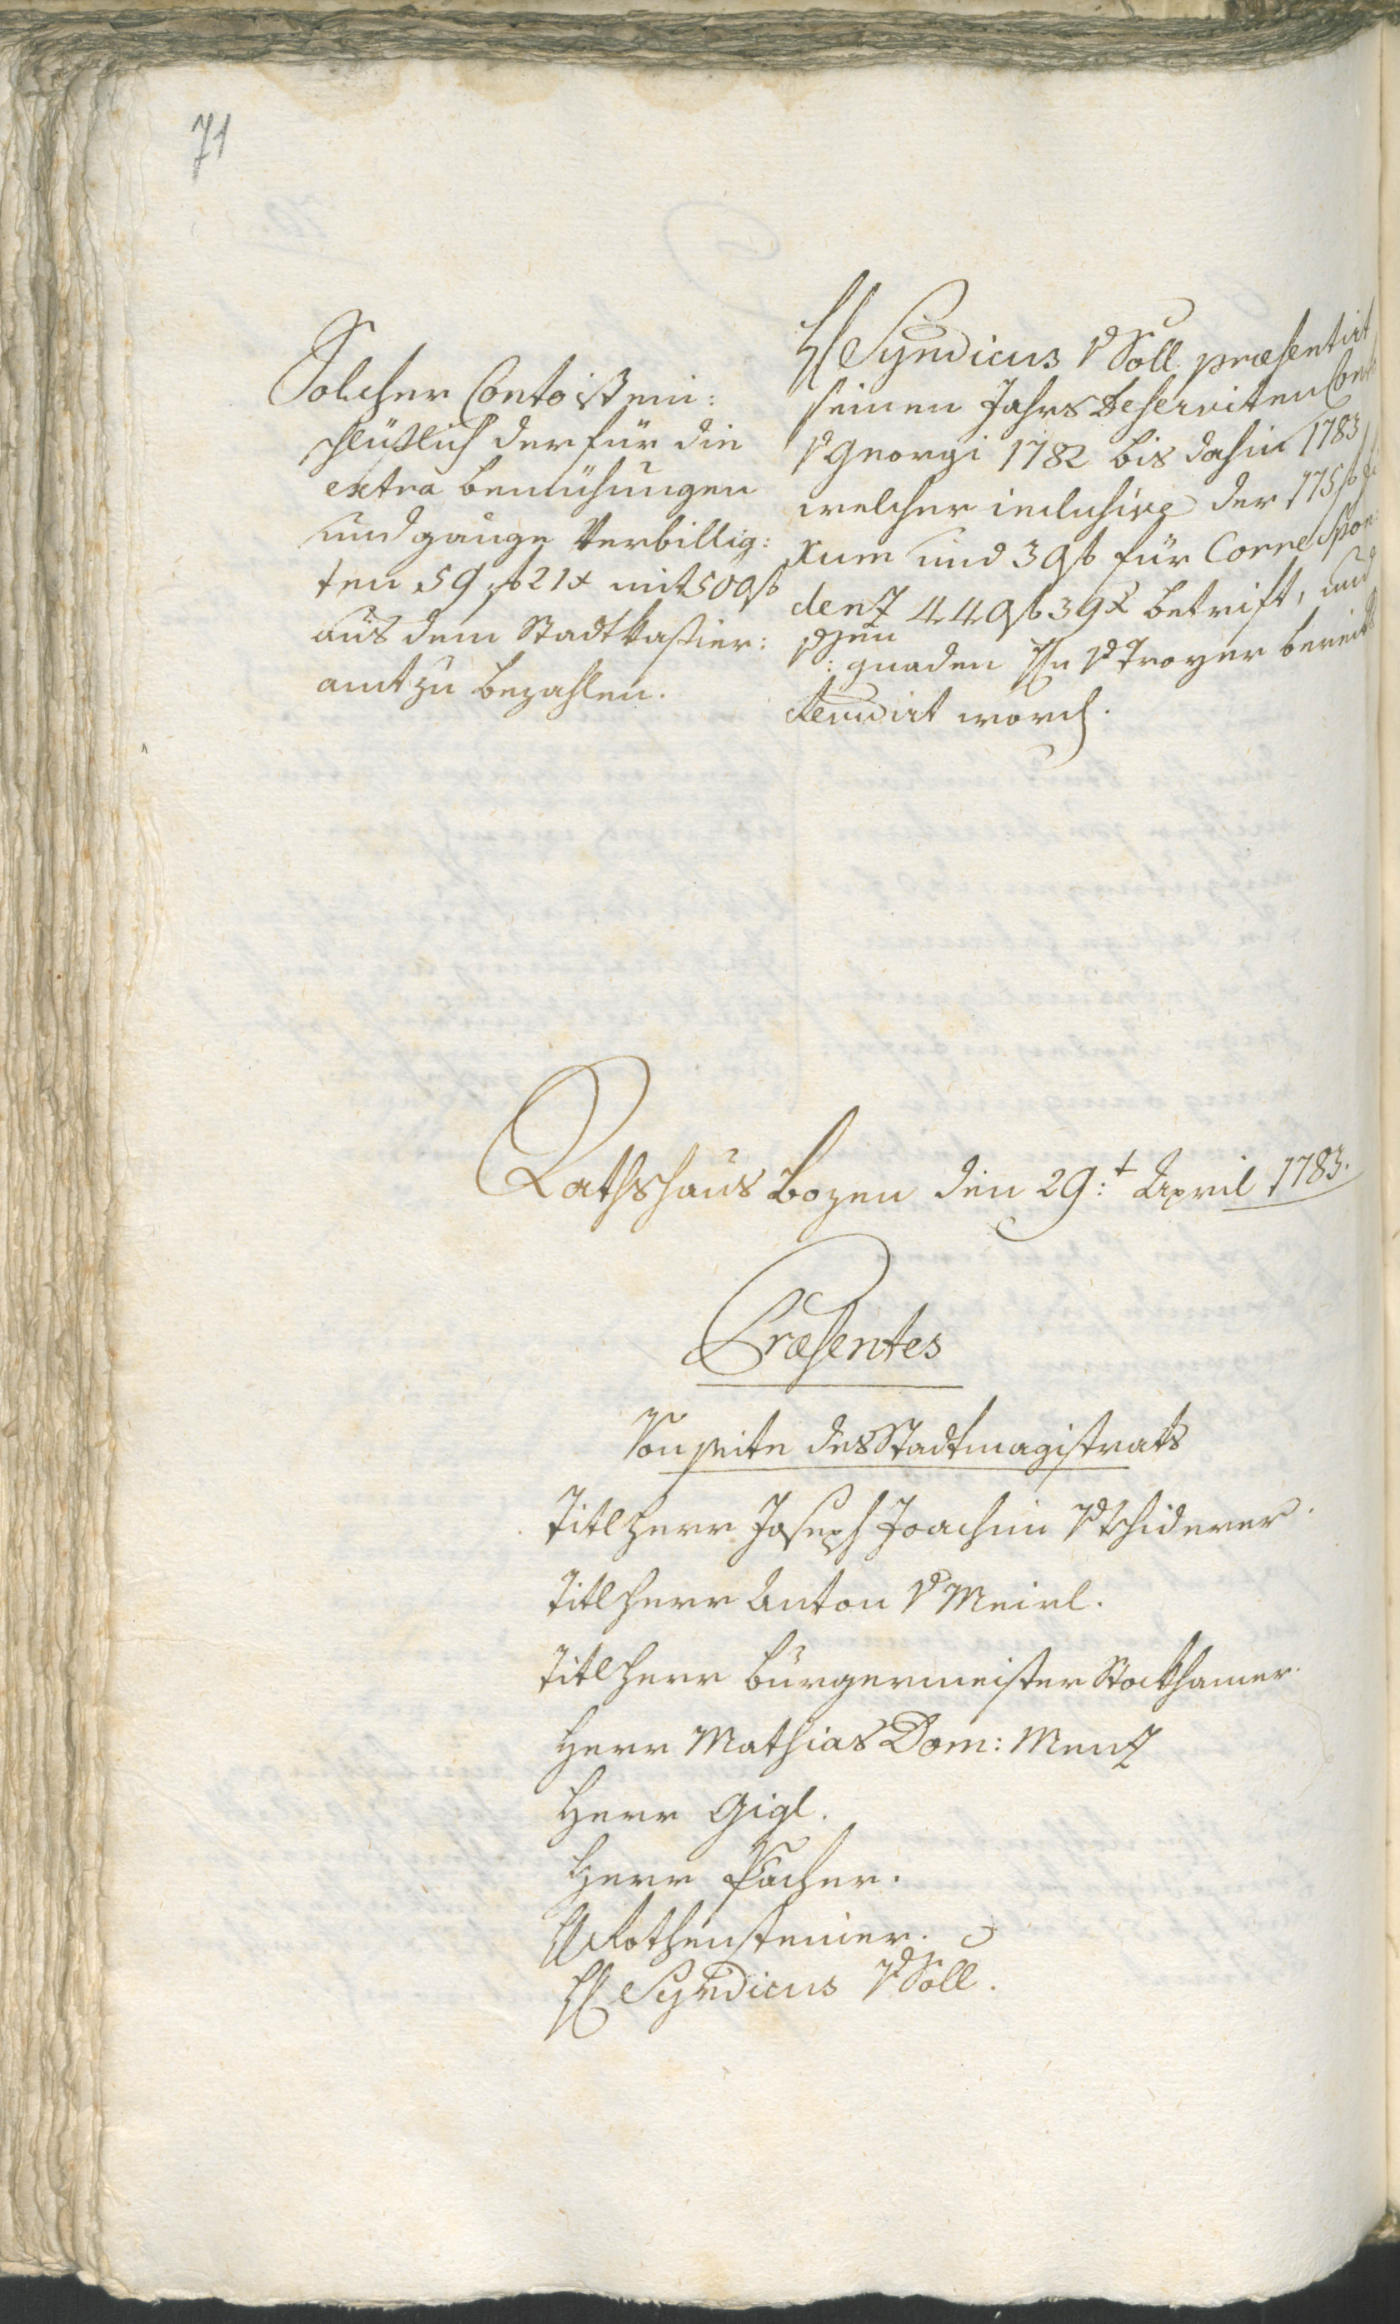 71
Solcher Conto ist ein:
schlüßlich der für die
extra bemühungen
und gänge Verbillig:
ten 59 f 21 x mit 509 f
aus dem Stadtkassier:
amt zu bezahlen.
H Syndicus v Söll præsentirt
seinen Jahrs Deserviten Con
v Georgi 1782 bis dahin 1783
welcher inclusive der 175 f fi
xum und 39 f für Correspon
denz 449 f 39 x betrift, und
: gnaden Hn v Troyer bereits
revidirt word.
Rathshaus Bozen den 29:t April 1783.
Præsentes
Von seite des Stadtmagistrats
Titl Herr Joseph Joachim v Tschiderer.
Titl Herr Anton v Meirl.
Titl Herr Bürgermeister Stockhamer.
Herr Mathias Dom: Menz
Herr Gigl.
Herr Pacher.
H Rothensteiner.
H Syndicus v Söll.